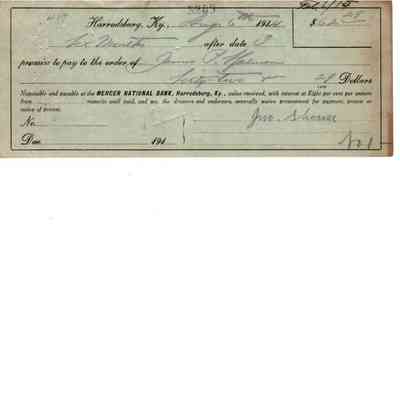 5969
Feb 6/15
Harrodsburg, Ky., Aug 6th 1914 $62 28
Six Months after date I
promise to pay to the order of James T.
Sixty two & 28 Dollars
Negotiable and payable at the MERCER NATIONAL BANK, Harrodsburg, Ky., value received, with interest at Eight per cent per annum
from maturity until paid, and we, the drawers and endorsers, severally waive presentment for payment, protest or
notice of protest.
No. Jno. Shewer
Due 191 No 1